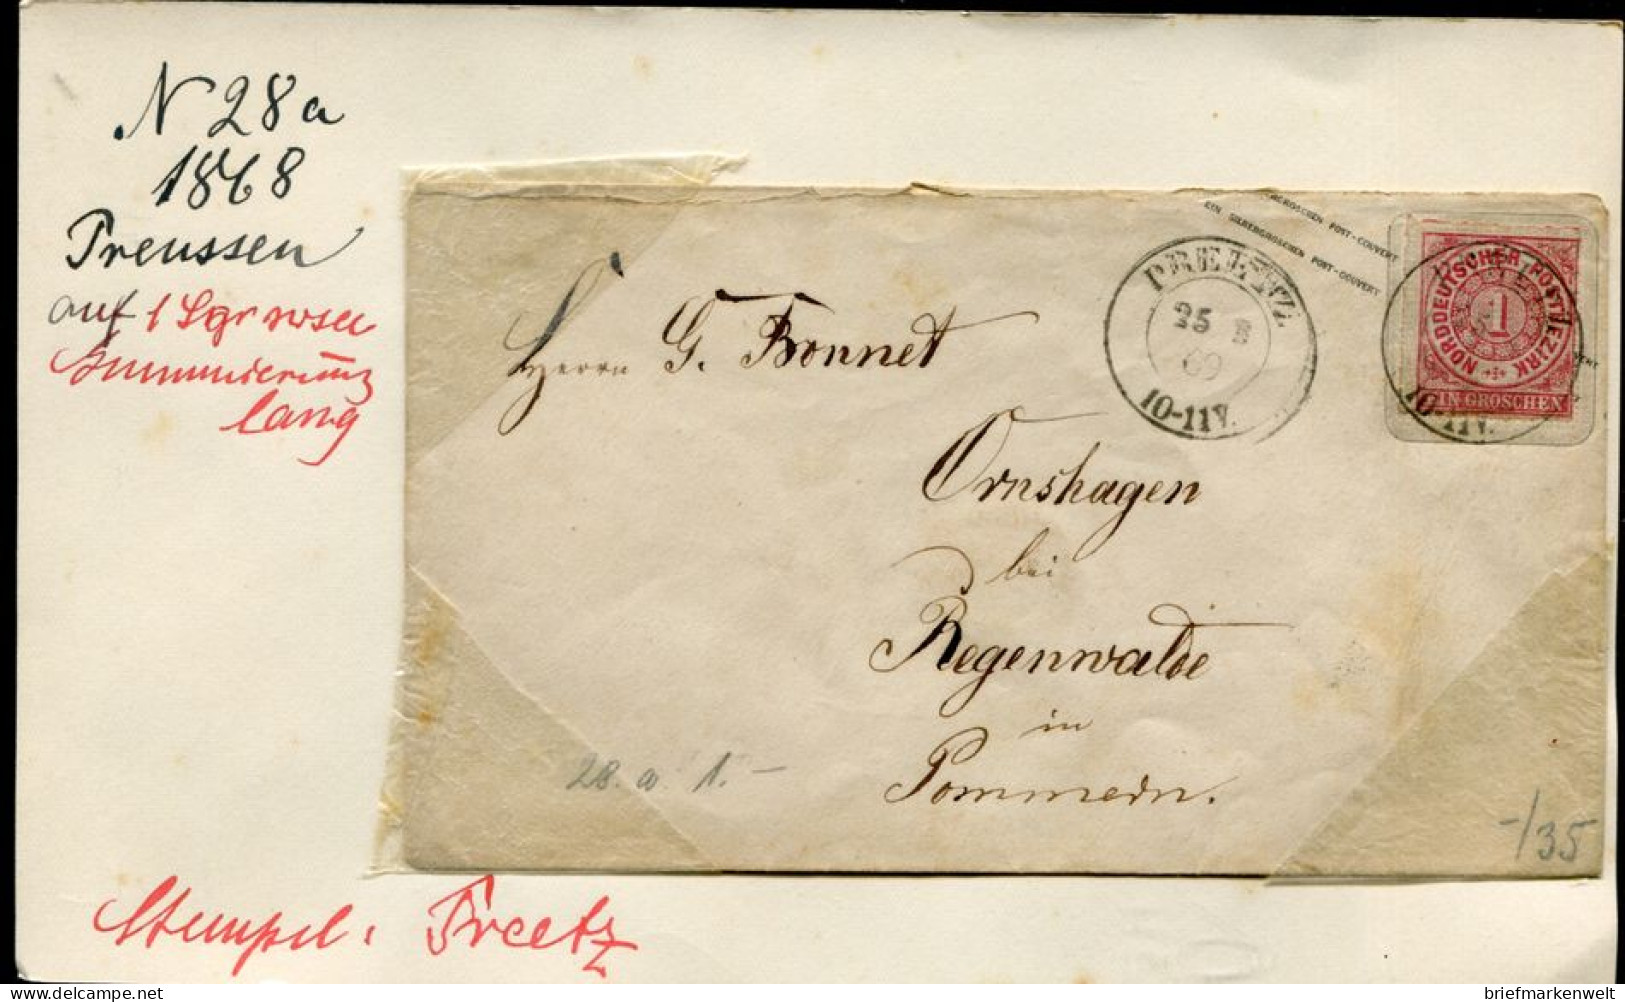 N 28a
1868
Preussen
auf 1 Sgr rosa
Gummierung
lang
Stempel: Preetz
EIN SILBERGROSCHEN POST-COUVERT
PREETZ
25
69
10-11 V.
NORDDEUTSCHER POSTBEZIRK
1
EIN GROSCHEN
10-11 V.
Herrn G. Bonnet
Ornshagen
bei
Regenwalde
in
Pommern.
28. a 1.-
-/35
delcampe.net
briefmarkenwelt